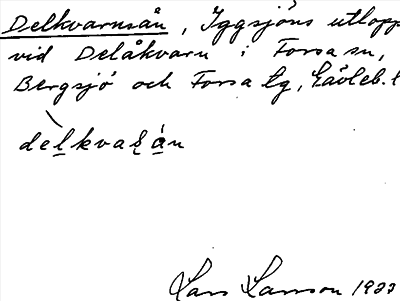 Delkvarnsån, Iggsjöns utlopp
vid Delåkvarn i Forsa sn,
Bergsjö och Forsa tg, Gävleb. l
delkvaṛån
Lars Larsson 1933